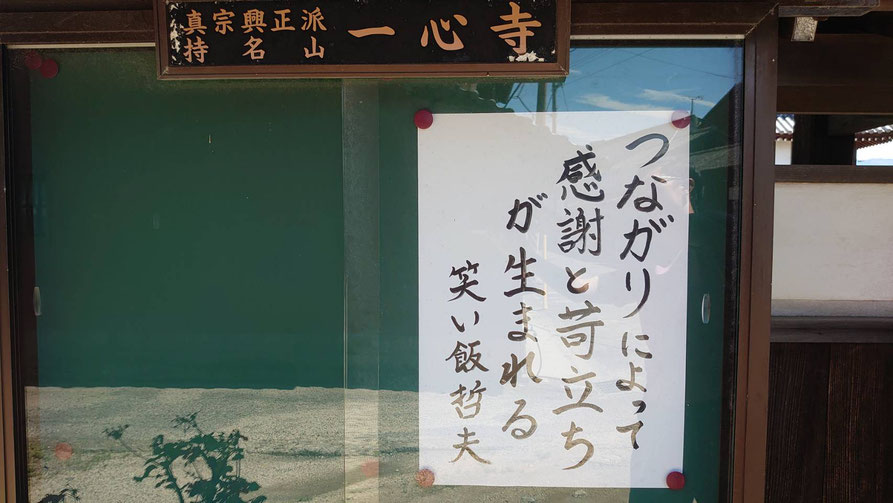 真宗興正派
持名山
一心寺
つながりによって
感謝と苛立ち
が生まれる
笑い飯哲夫